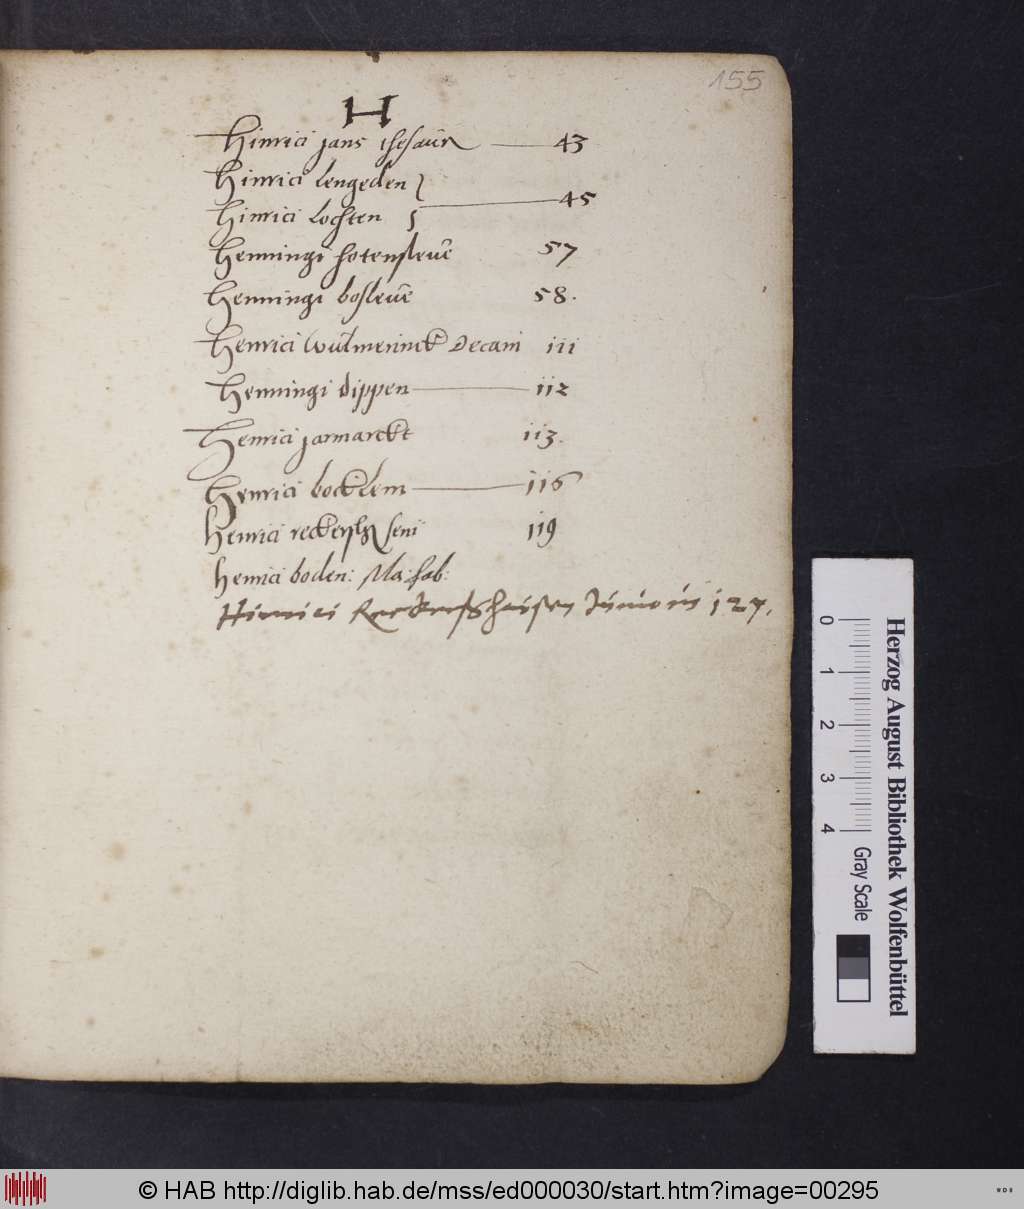 155
H
Hinrici jans thesaur 43
Hinrici lengeden
Hinrici lochten 45
Henningi hotensleve 57
Henningi bosleve 58.
Henrici wulmerinck Decani 111
Henningi dippen 112
Henrici jarmarckt 113.
Henrici bocklem 116
Henrici reckersh seni 119
henrici boden: Ma: fab:
Hinrici Reckershausen Junioris 127.
Herzog August Bibliothek Wolfenbüttel
0 1 2 3 4 Gray Scale
© HAB http://diglib.hab.de/mss/ed000030/start.htm?image=00295